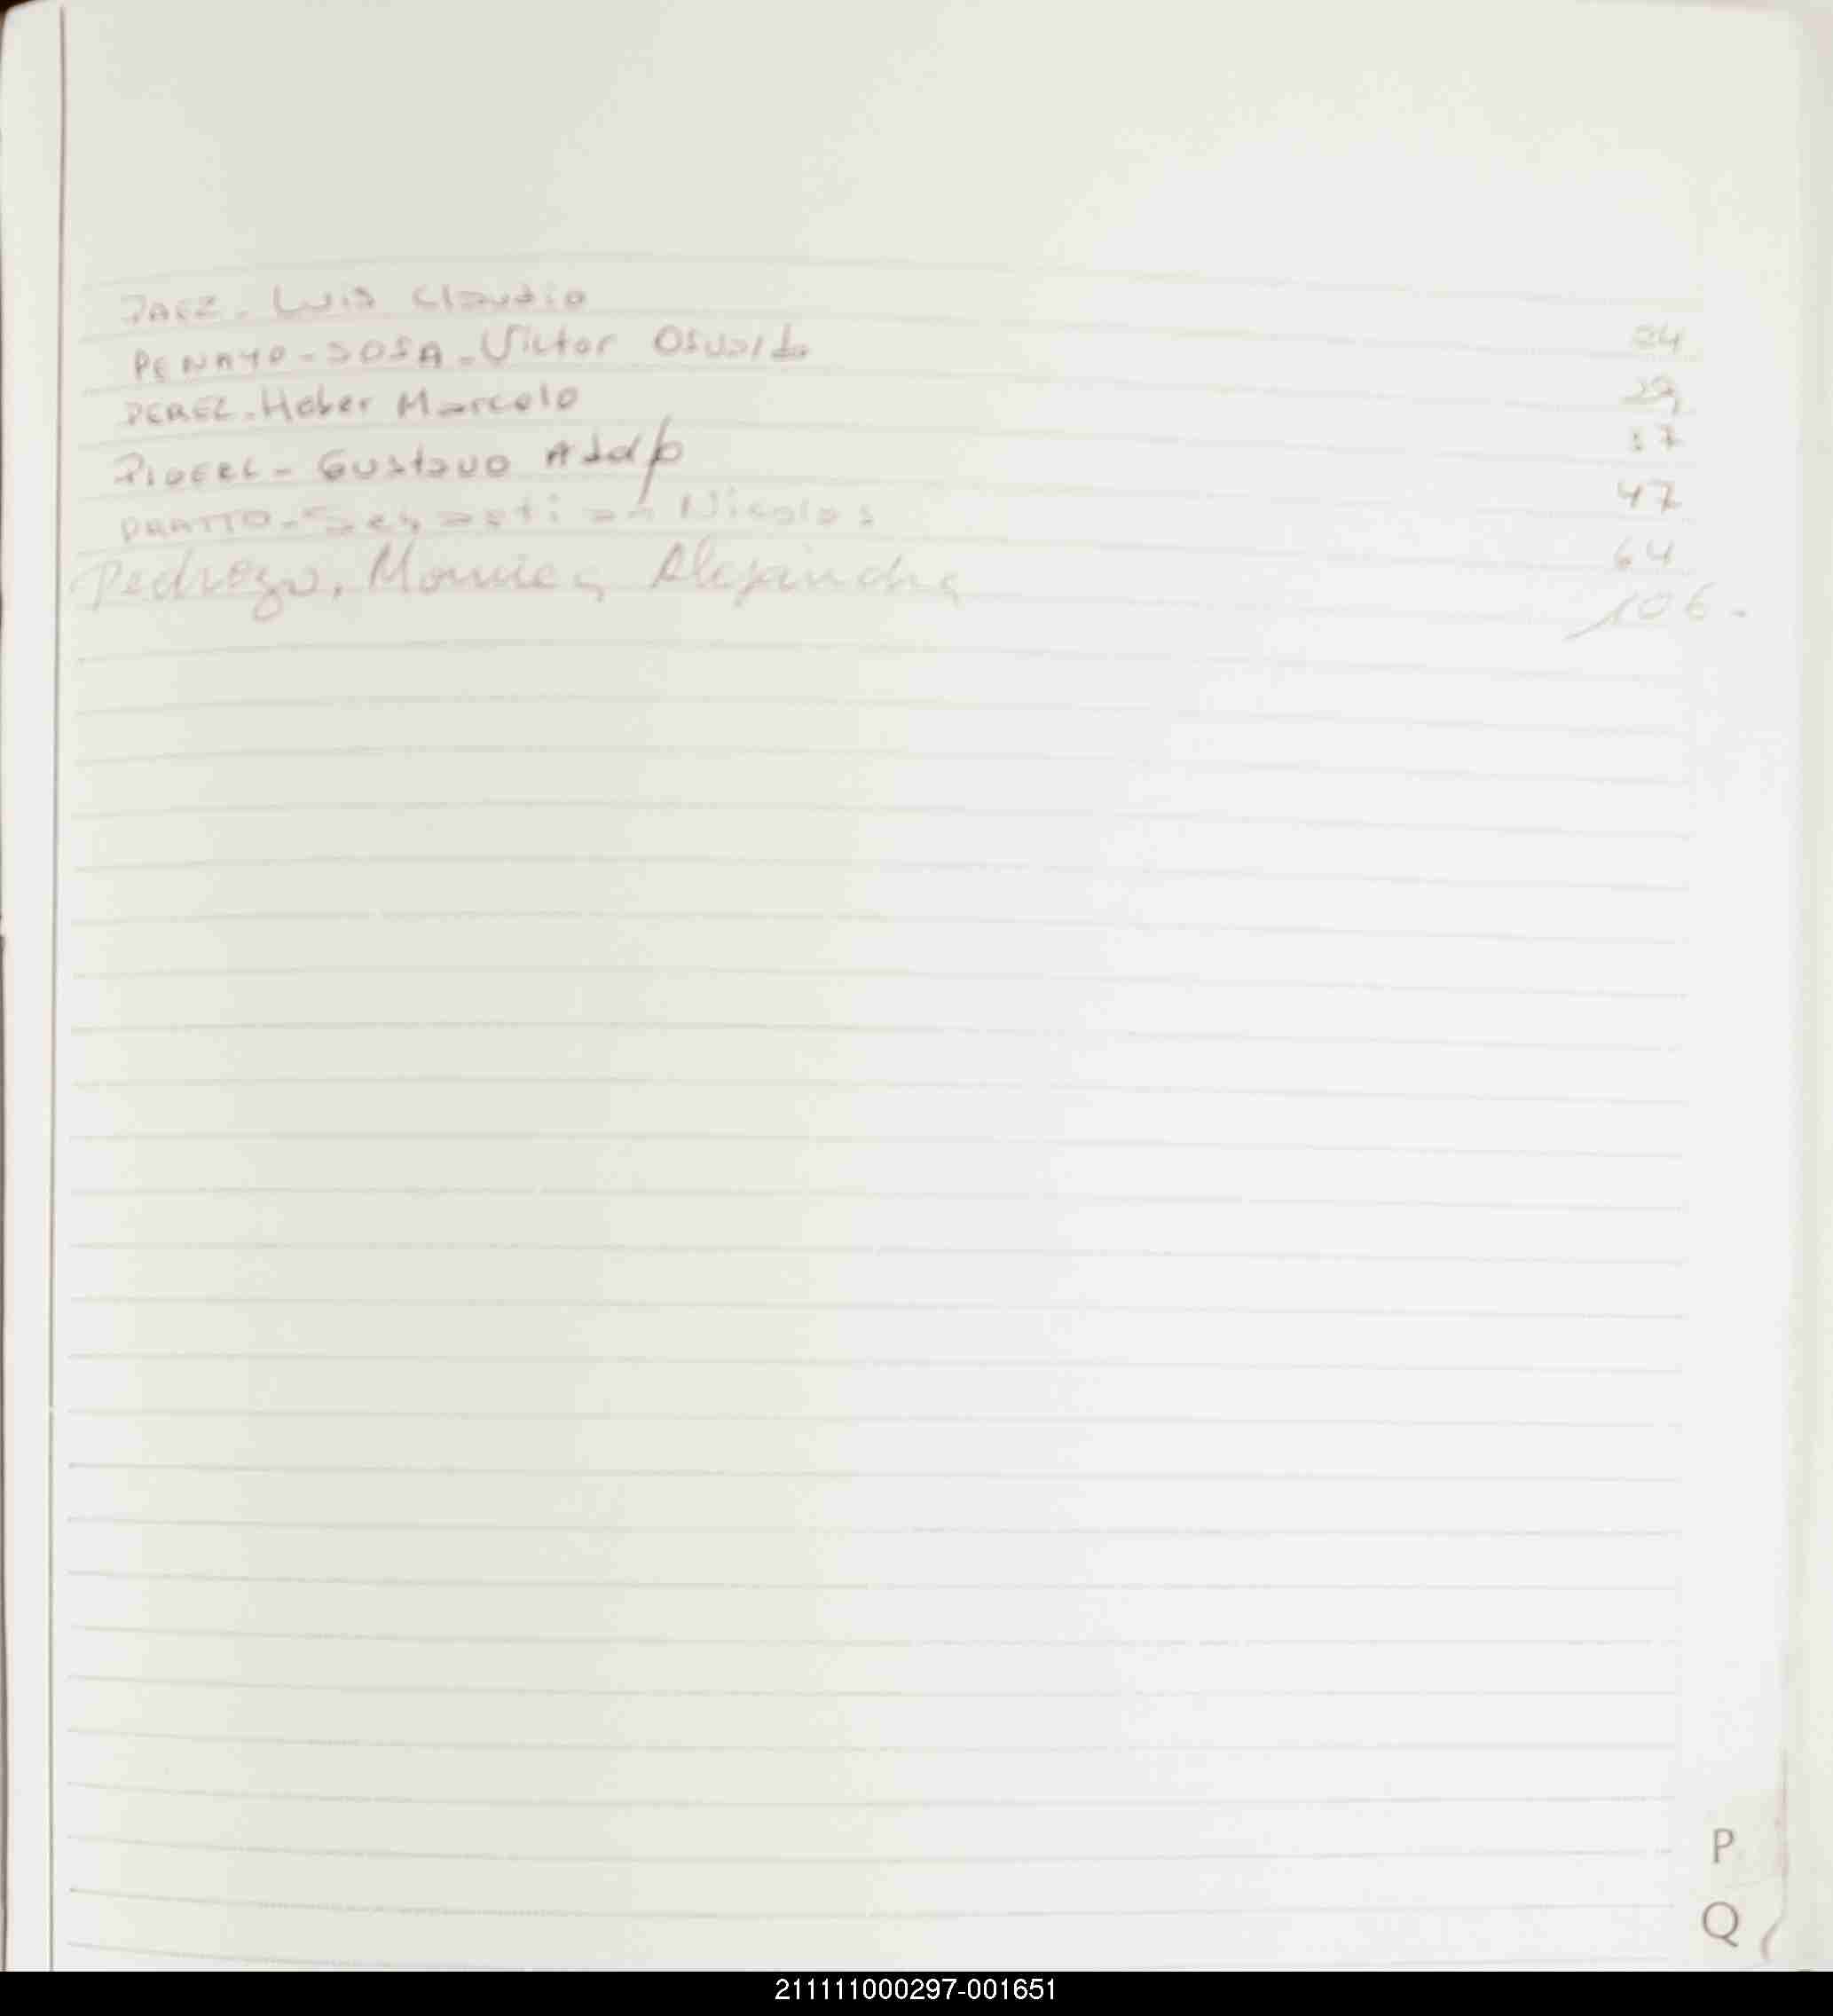 PAEZ - Luis Claudio
PENAYO - SOSA - Victor Osvaldo 24
PEREZ - Heber Marcelo 29
Gustavo Adolfo 37
PRATTO - Sebastian Nicolas 47
Pedrozo, Monica Alejandra 64
106.-
P
Q
211111000297-001651